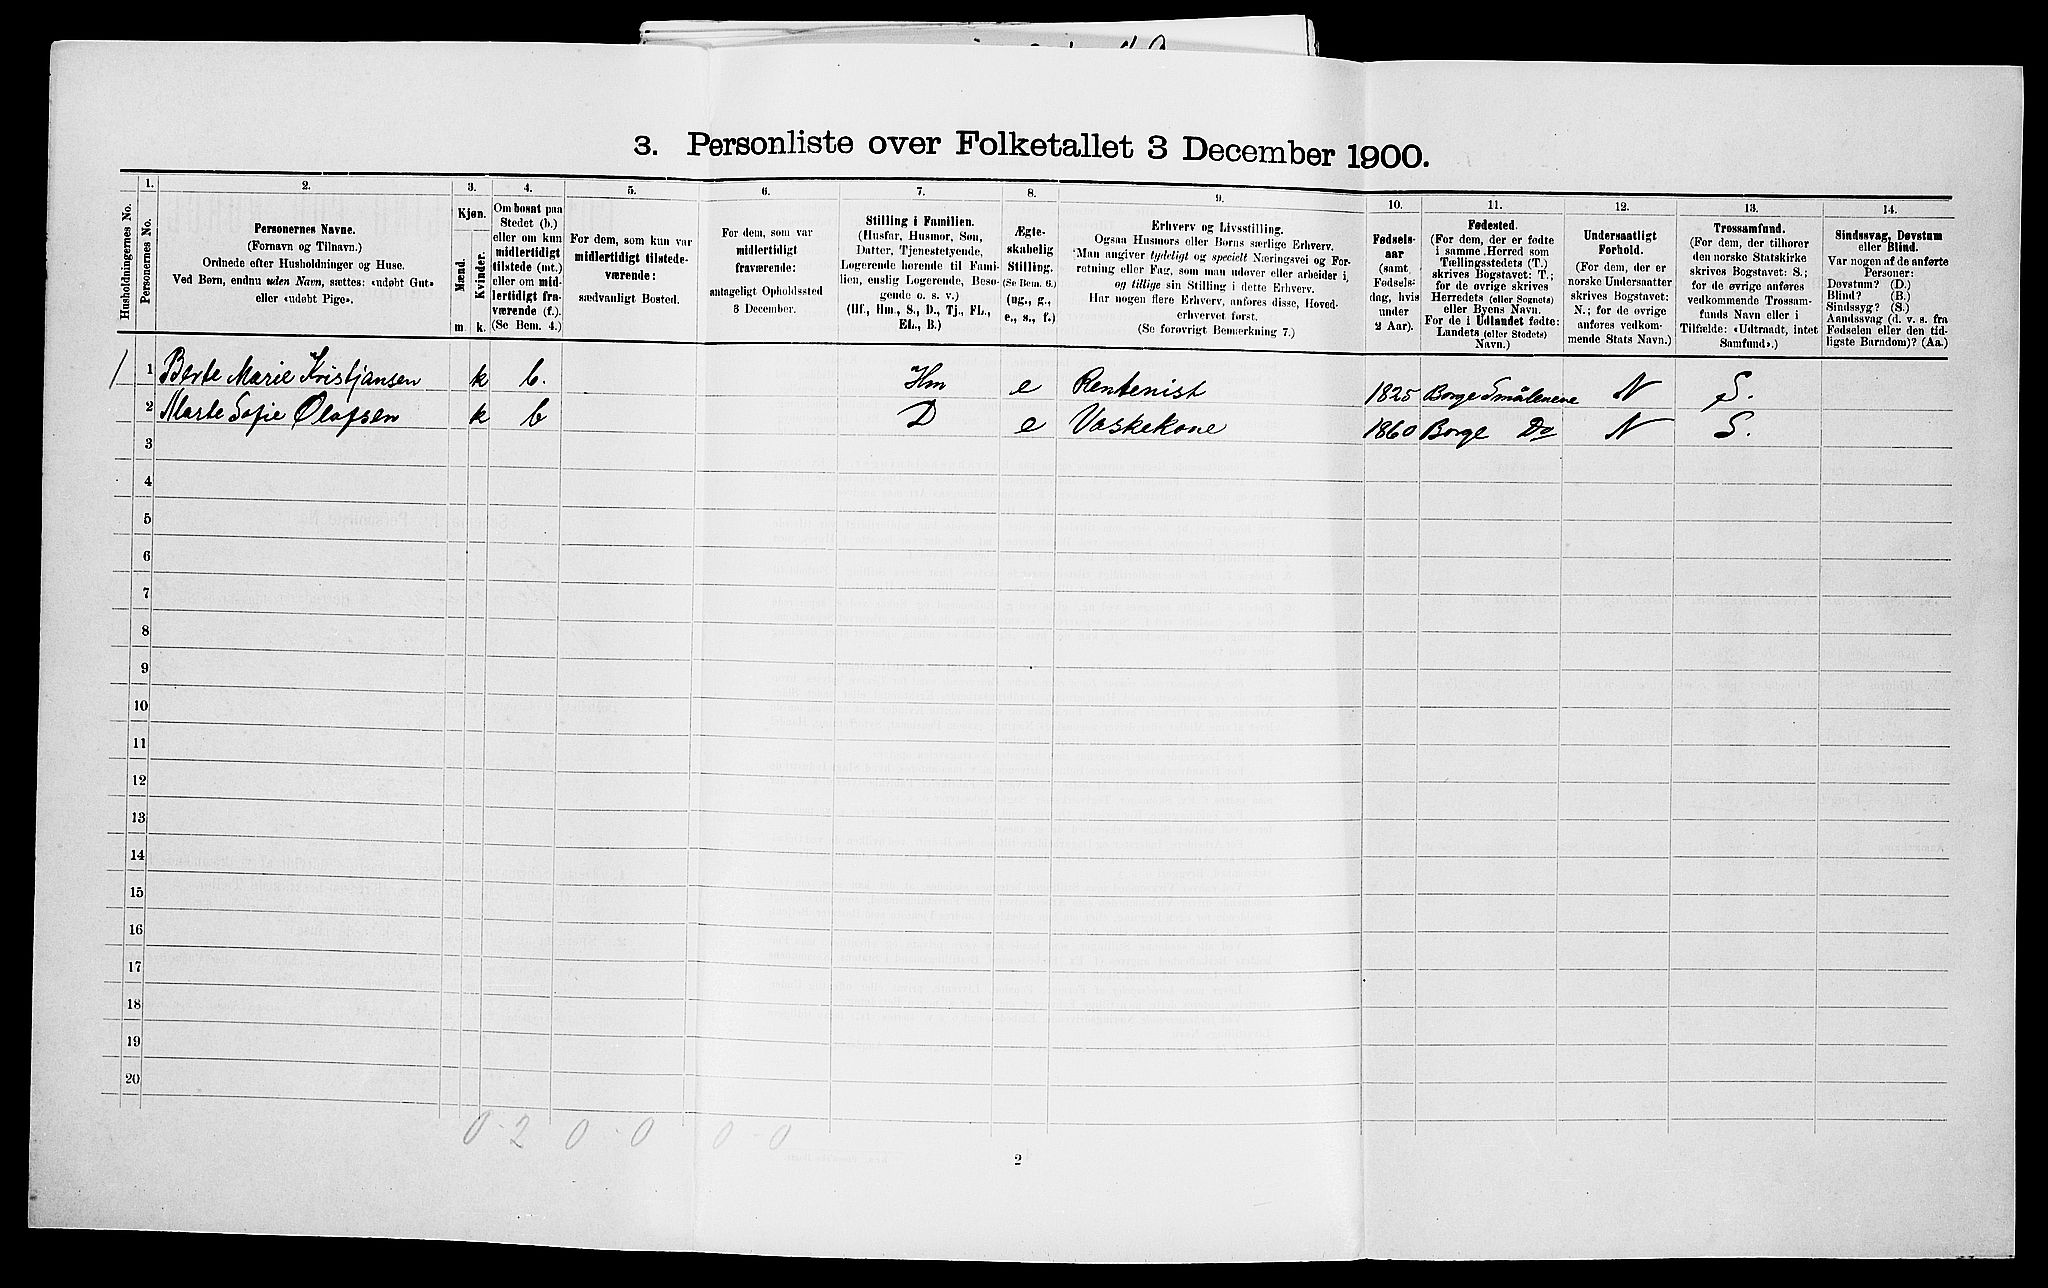 3. Personliste over Folketallet 3 December 1900.
1. 2. 3. 4. 5. 6. 7. 8. 9. 10. 11. 12. 13. 14.
Husholdningernes No.
Personernes No.
Personernes Navne.
(Fornavn og Tilnavn.)
Ordnede efter Husholdninger og Huse.
Ved Børn, endnu uden Navn, sættes: «udøbt Gut»
eller «udøbt Pige».
Kjøn.
Mænd.
Kvinder.
m. k.
Om bosat paa
Stedet (b.)
eller om kun
midlertidigt
tilstede (mt.)
eller om mid-
lertidigt fra-
værende (f.).
(Se Bem. 4.)
For dem, som kun var
midlertidigt tilstede-
værende:
sædvanligt Bosted.
For dem, som var
midlertidigt
fraværende:
antageligt Opholdssted
3 December.
Stilling i Familien.
(Husfar, Husmor, Søn,
Datter, Tjenestetyende,
Logerende hørende til Fami-
lien, enslig Logerende, Besø-
gende o. s. v.)
(Hf., Hm., S., D., Tj., FL.,
EL., B.)
Ægte-
skabelig
Stilling.
(Se Bem. 6.)
(ug., g.,
e., s., f.)
Erhverv og Livsstilling.
Ogsaa Husmors eller Børns særlige Erhverv.
Man angiver tydeligt og specielt Næringsvei og For-
retning eller Fag, som man udøver eller arbeider i,
og tillige sin Stilling i dette Erhverv.
Har nogen flere Erhverv, anføres disse, Hoved-
erhvervet først.
(Se forøvrigt Bemærkning 7.)
Fødsels-
aar
(samt
Fødsels-
dag, hvis
under
2 Aar).
Fødested.
(For dem, der er fødte
i samme Herred som
Tællingsstedets (T.)
skrives Bogstavet: T.;
for de øvrige skrives
Herredets (eller Sognets)
eller Byens Navn.
For de i Udlandet fødte:
Landets (eller Stedets)
Navn.)
Undersaatligt
Forhold.
(For dem, der er
norske Undersaatter
skrives Bogstavet:
N.; for de øvrige
anføres vedkom-
mende Stats Navn.)
Trossamfund.
(For dem, der tilhører
den norske Statskirke
skrives Bogstavet: S.;
for de øvrige anføres
vedkommende Trossam-
funds Navn eller i
Tilfælde: «Udtraadt, intet
Samfund».)
Sindssvag, Døvstum
eller Blind.
Var nogen af de anførte
Personer:
Døvstum? (D.)
Blind? (B.)
Sindssyg? (S.)
Aandssvag (d. v. s. fra
Fødselen eller den tid-
ligste Barndom)? (Aa.)
1 1 Berte Marie Kristjansen k b. Hm e Rentenist 1825 Borge Smålenene N S.
2 Marte Sofie Olafsen k b D e Vaskekone 1860 Borge Do N S.
3
4
5
6
7
8
9
10
11
12
13
14
15
16
17
18
19
20
0 - 2 0 - 0 0 - 0
2